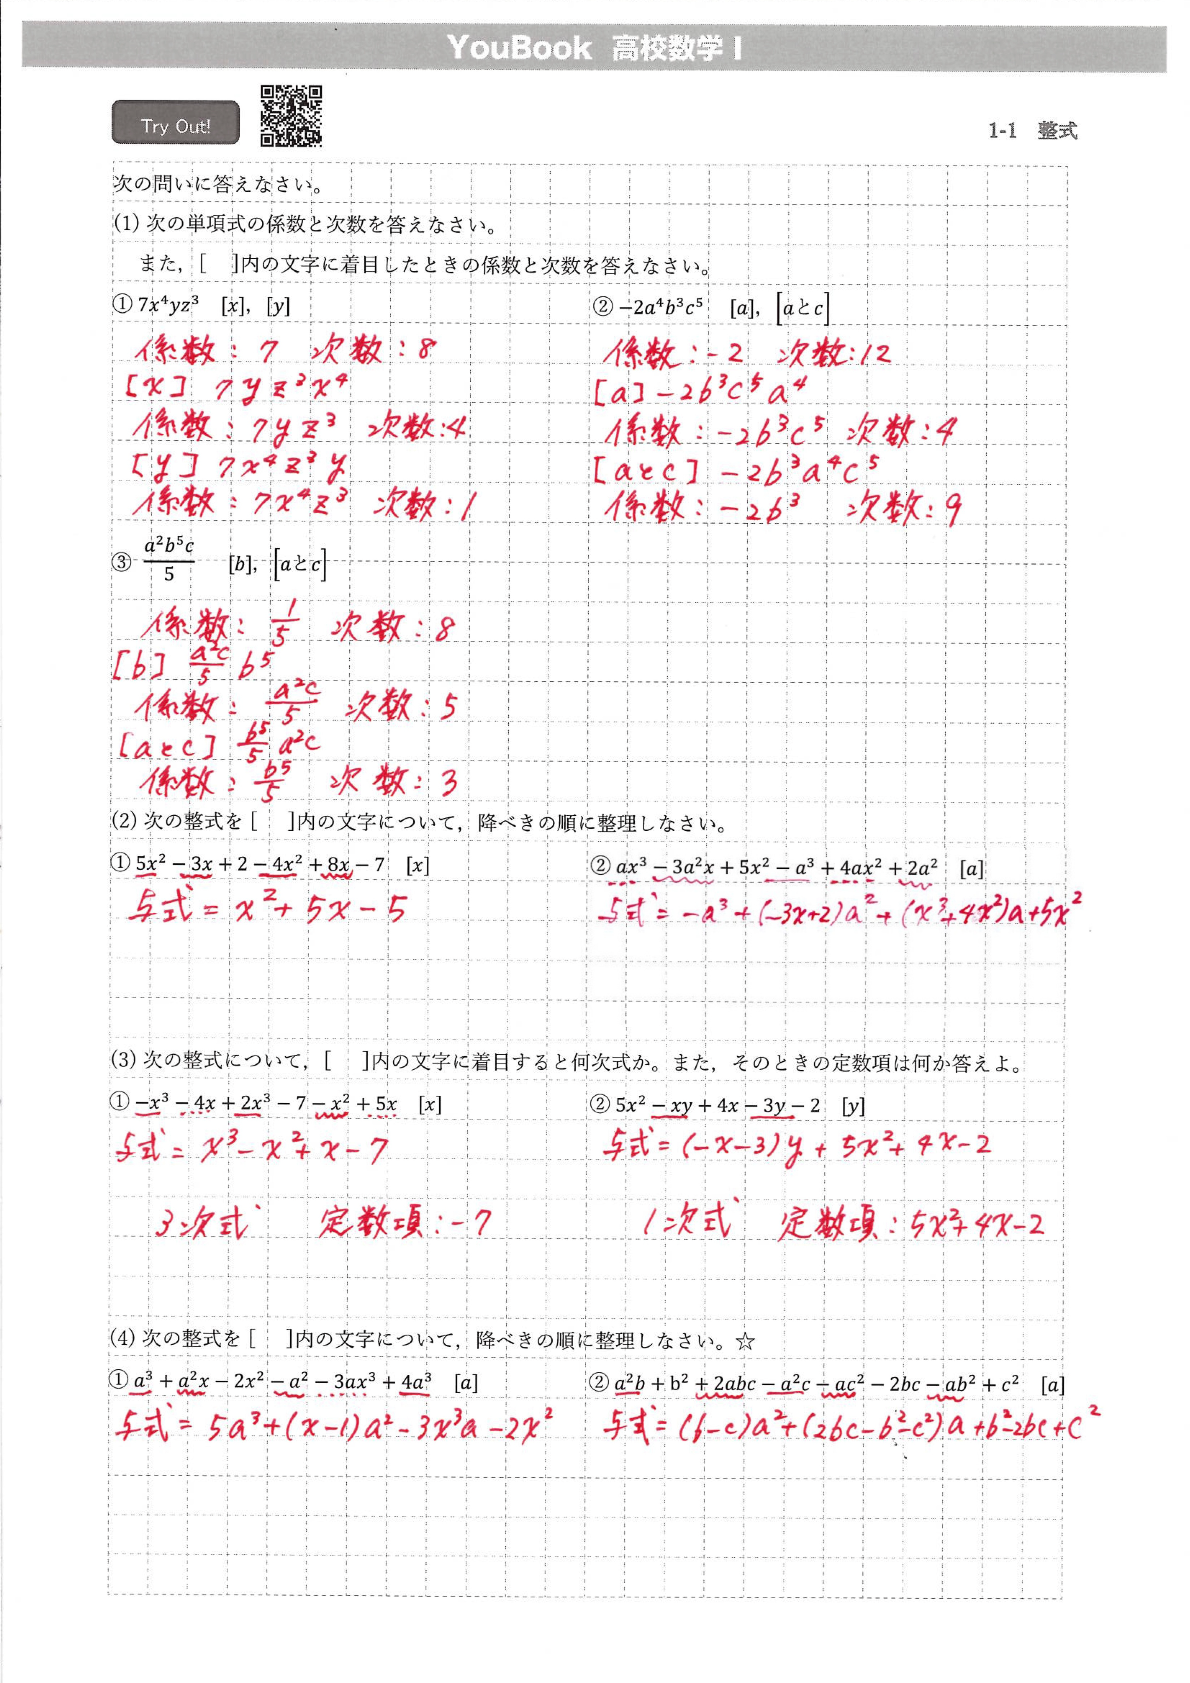 YouBook 高校数学 I
Try Out!
1-1 整式
次の問いに答えなさい。
(1) 次の単項式の係数と次数を答えなさい。
また，[ ]内の文字に着目したときの係数と次数を答えなさい。
① 7x⁴yz³ [x]，[y]
係数：7 次数：8
[x] 7yz³x⁴
係数：7yz³ 次数：4
[y] 7x⁴z³y
係数：7x⁴z³ 次数：1
② −2a⁴b³c⁵ [a]，[aとc]
係数：−2 次数：12
[a] −2b³c⁵a⁴
係数：−2b³c⁵ 次数：4
[aとc] −2b³a⁴c⁵
係数：−2b³ 次数：9
③ a²b⁵c/5 [b]，[aとc]
係数：1/5 次数：8
[b] a²c/5 b⁵
係数：a²c/5 次数：5
[aとc] b⁵/5 a²c
係数：b⁵/5 次数：3
(2) 次の整式を [ ]内の文字について，降べきの順に整理しなさい。
① 5x² − 3x + 2 − 4x² + 8x − 7 [x]
与式 = x² + 5x − 5
② ax³ − 3a²x + 5x² − a³ + 4ax² + 2a² [a]
与式 = −a³ + (−3x+2)a² + (x³+4x²)a + 5x²
(3) 次の整式について，[ ]内の文字に着目すると何次式か。また，そのときの定数項は何か答えよ。
① −x³ − 4x + 2x³ − 7 − x² + 5x [x]
与式 = x³ − x² + x − 7
3次式 定数項：−7
② 5x² − xy + 4x − 3y − 2 [y]
与式 = (−x−3)y + 5x² + 4x − 2
1次式 定数項：5x²+4x−2
(4) 次の整式を [ ]内の文字について，降べきの順に整理しなさい。☆
① a³ + a²x − 2x² − a² − 3ax³ + 4a³ [a]
与式 = 5a³ + (x−1)a² − 3x³a − 2x²
② a²b + b² + 2abc − a²c − ac² − 2bc − ab² + c² [a]
与式 = (b−c)a² + (2bc−b²−c²)a + b²−2bc+c²